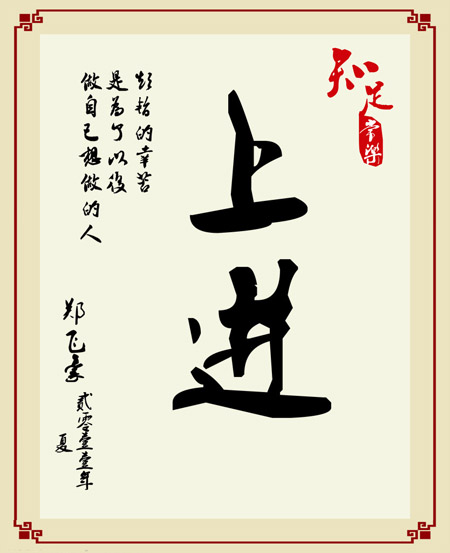 知足
常樂
上进
的幸苦
是為了以後
做自己想做的人
郑飞豪
貳零壹壹年
夏